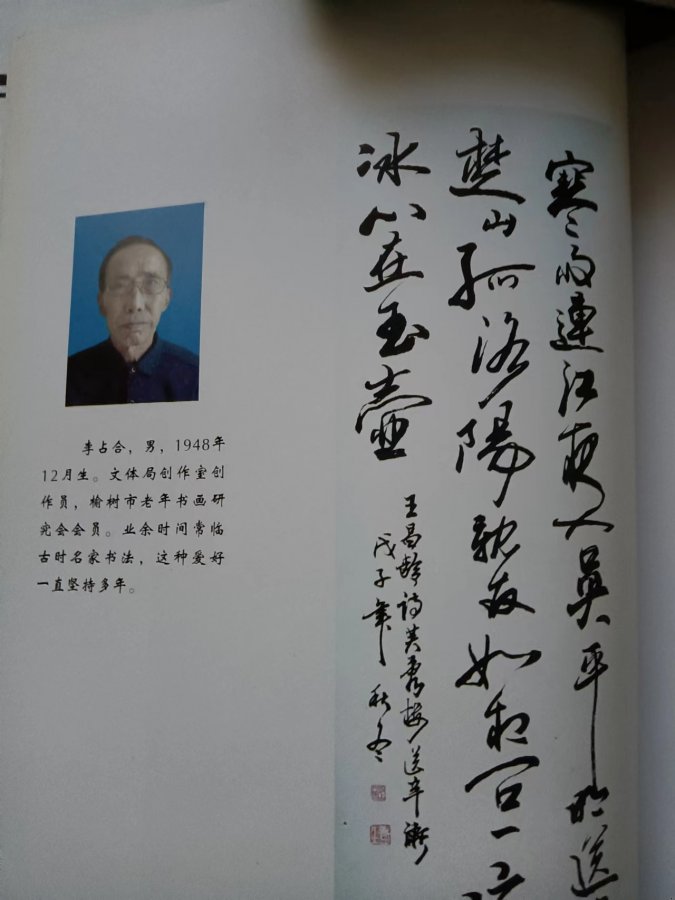 李占合，男，1948年
12月生。文体局创作室创
作员，榆树市老年书画研
究会会员。业余时间常临
古时名家书法，这种爱好
一直坚持多年。
寒雨連江夜入吳平明送
楚山孤洛陽親友如相问一
冰心在玉壺
王昌龄诗芙蓉楼送辛渐
戊子年秋冬